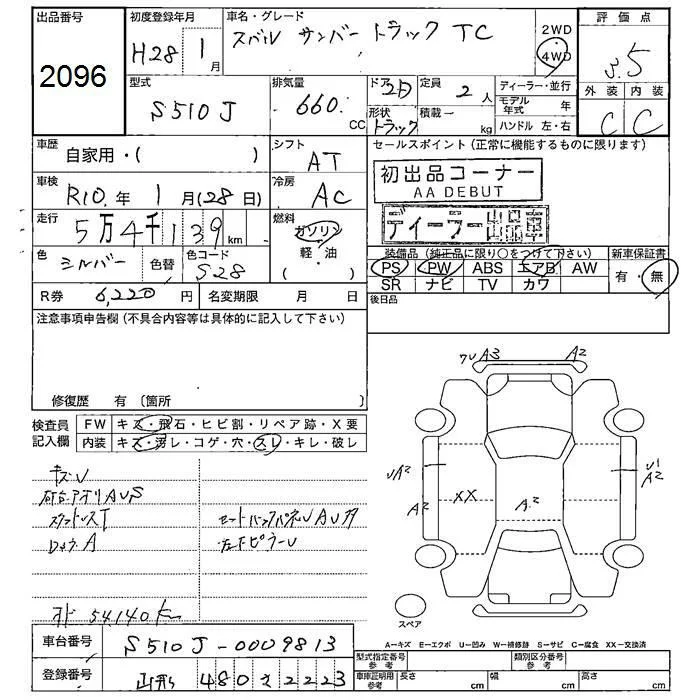 出品番号 初度登録年月 車名・グレード 2WD 評価点
2096 H28 1月 スバル サンバートラック TC 4WD 3.5
型式 排気量 ドア 定員 ディーラー・並行 外装 内装
S510J 660 CC 2D 2人 モデル年式 年 C C
形状 積載 ハンドル 左・右
トラック kg
車歴 シフト セールスポイント(正常に機能するものに限ります)
自家用・( ) AT 初出品コーナー
AA DEBUT
車検 冷房
R10年 1月(28日) AC ディーラー出品車
走行 燃料
5万4千139km ガソリン 装備品(純正品に限り○をつけて下さい) 新車保証書
色 色替 色コード 軽・油 PS PW ABS エアB AW 有・無
シルバー S28 SR ナビ TV カワ
R券 6,220円 名変期限 月 日 後日品
注意事項申告欄(不具合内容等は具体的に記入して下さい)
修復歴 有(箇所 )
ワレ A3 A2
検査員 FW キズ・飛石・ヒビ割・リペア跡・X要
記入欄 内装 キズ・汚レ・コゲ・穴・スレ・キレ・破レ
キズU
UA2 U1
A2
A2 XX A2
D A
オド 54,140km
スペア
A=キズ E=エクボ U=凹み W=補修跡 S=サビ C=腐食 XX=交換済
車台番号 S510J-0009813
型式指定番号 参考 類別区分番号 参考
登録番号 山形 480 さ 2223
車庫証明用 参考 長さ cm 幅 cm 高さ cm